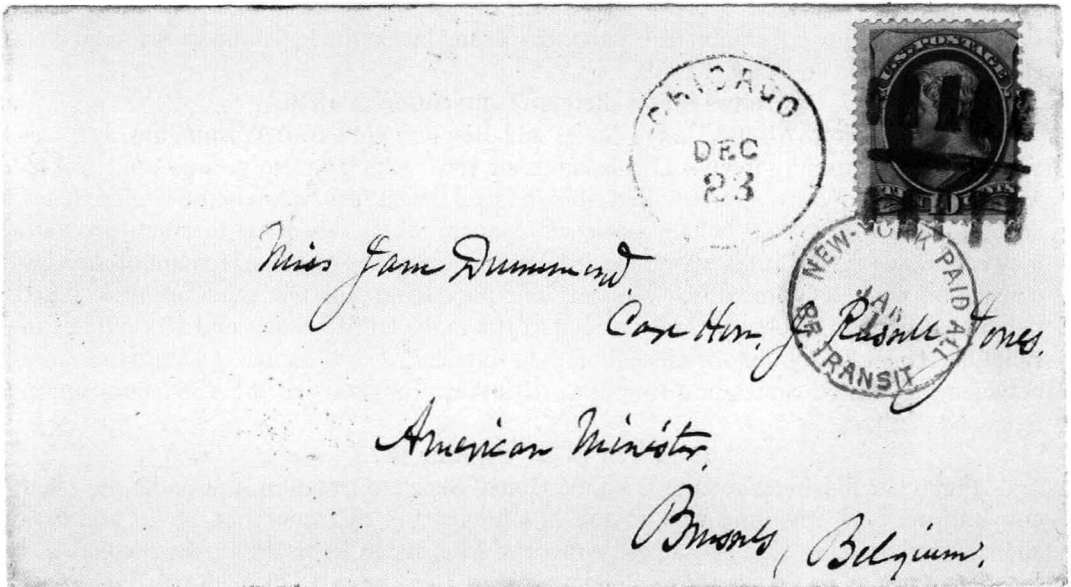 U.S. POSTAGE
CHICAGO
DEC
23
10
NEW-YORK PAID ALL
JA
BR TRANSIT
Miss Jane Drummond.
Care Hon. J. Russell Jones.
American Minister,
Brussels, Belgium.